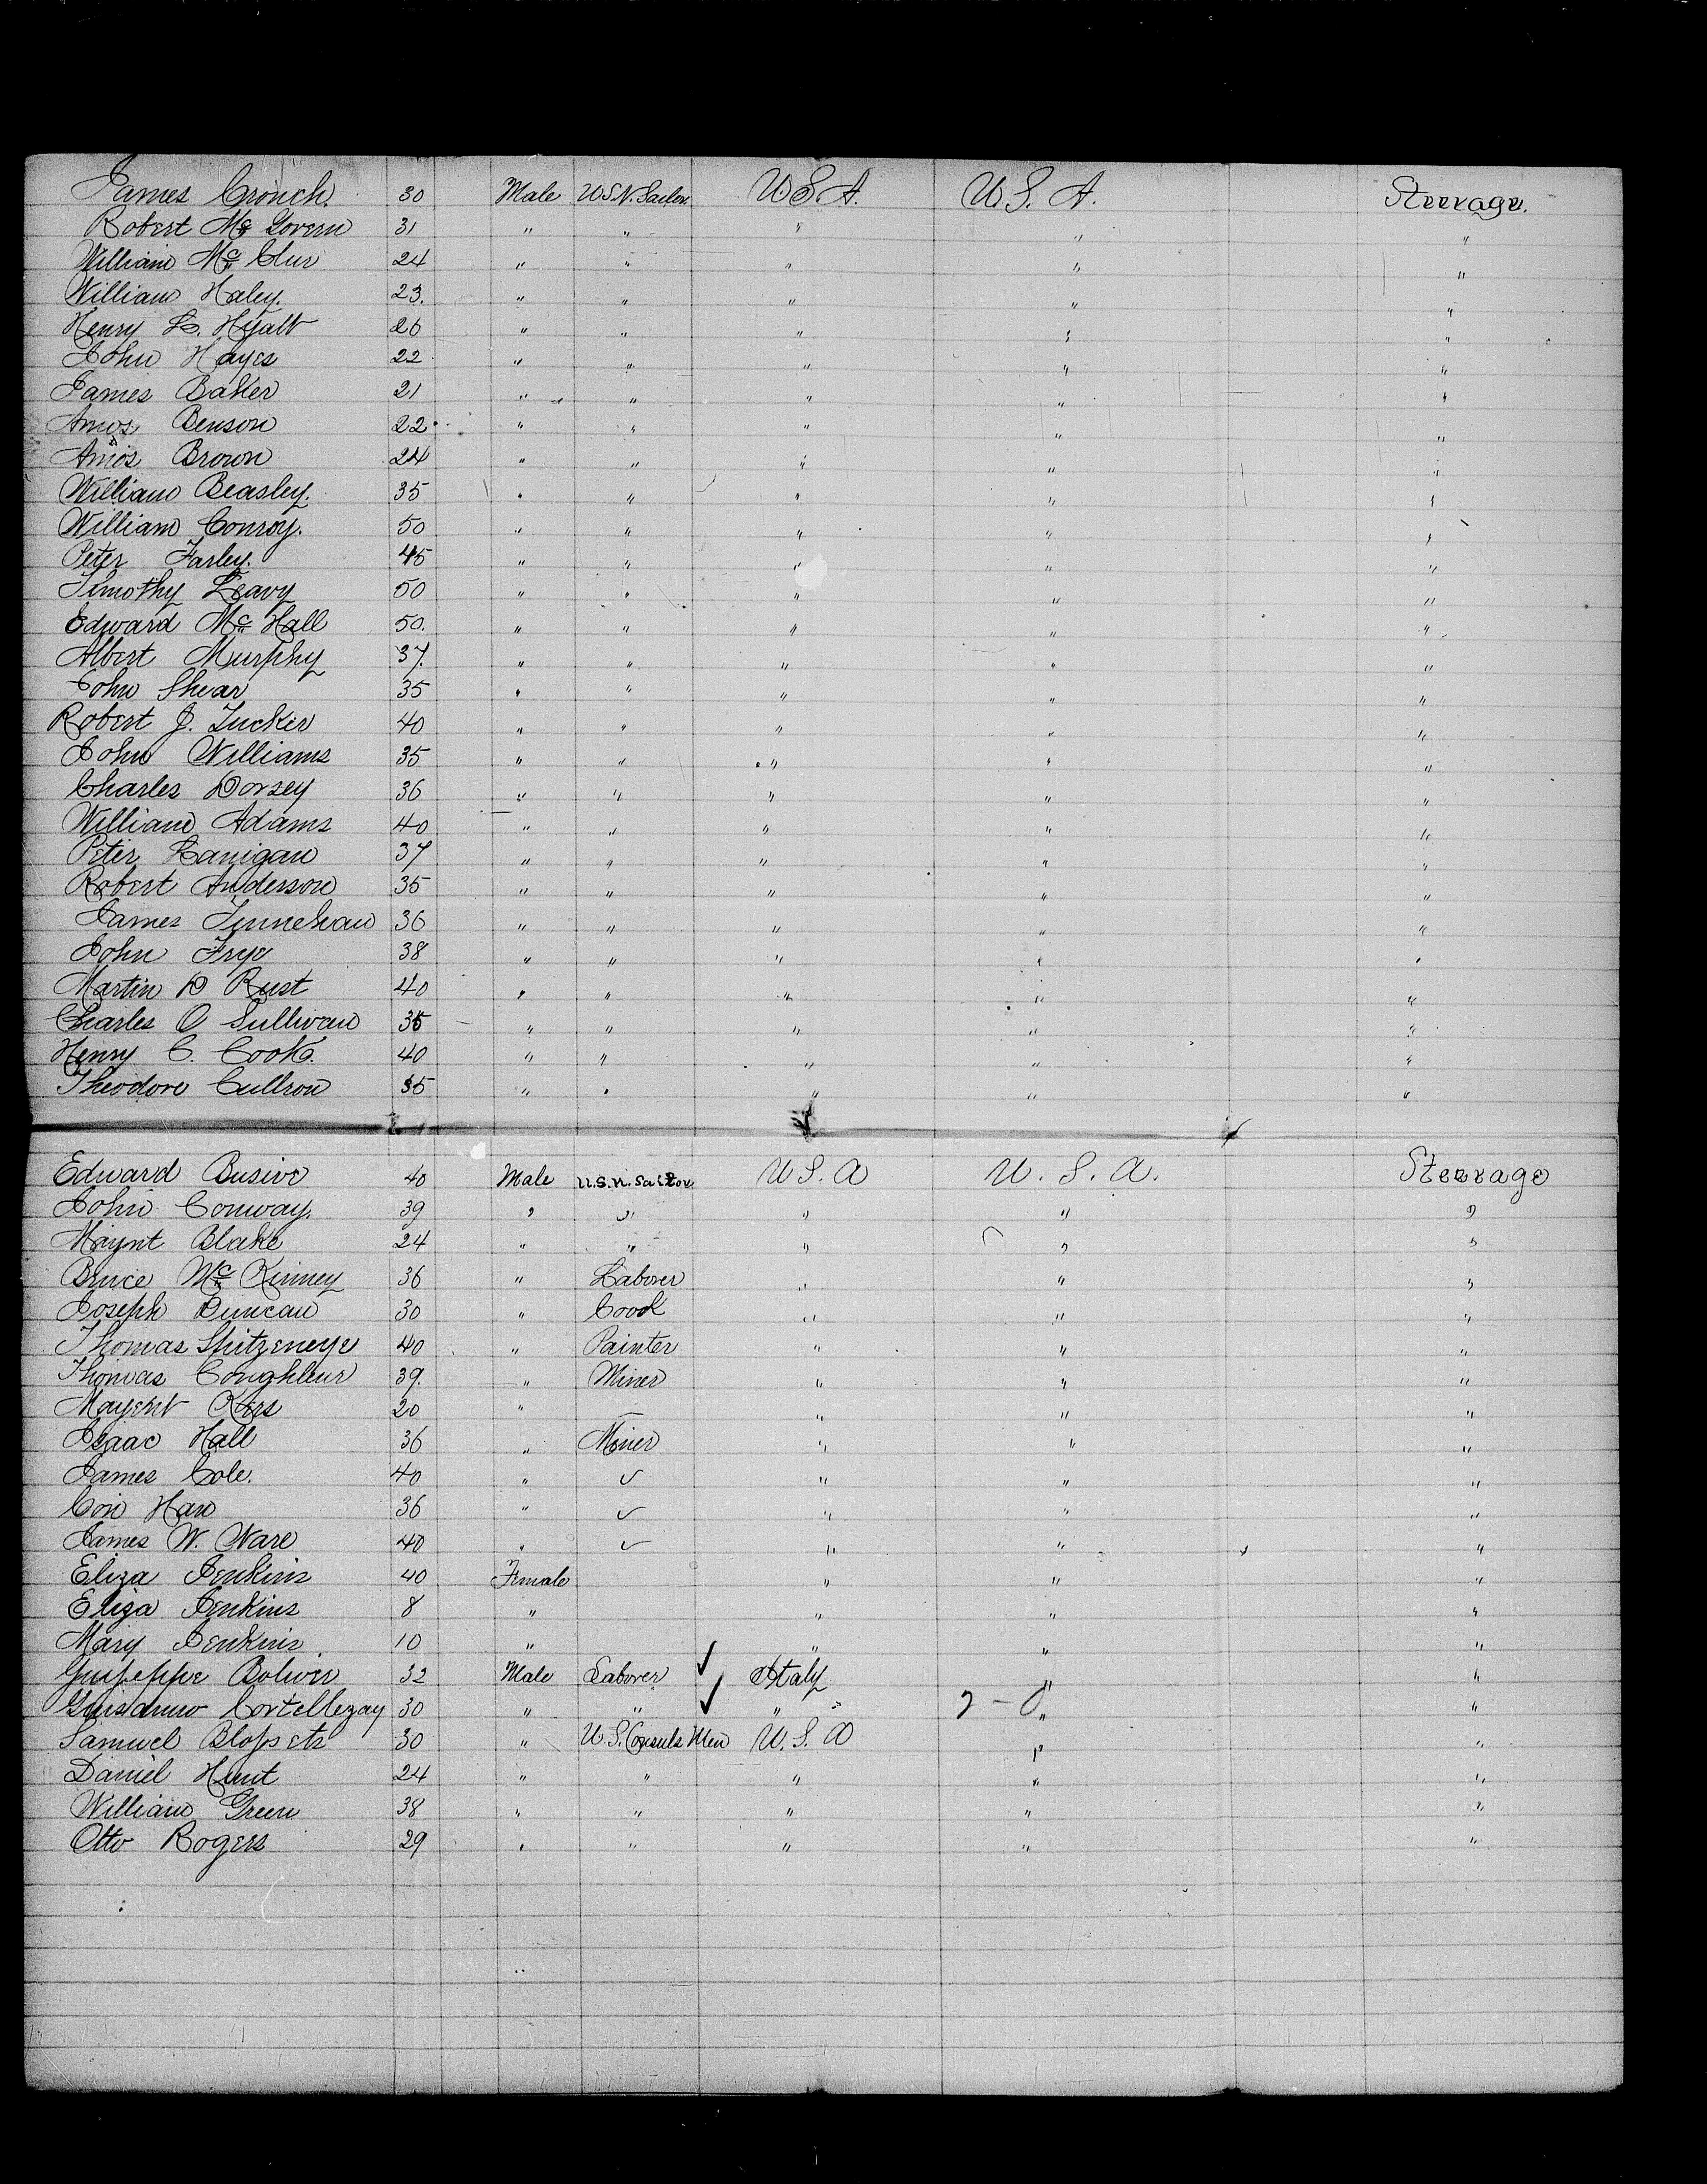 James Crouch. 30 Male U.S.N. Sailor U.S.A. U.S. A. Steerage.
Robert Mc Govern 31 " " " " "
William Mc Clur 24 " " " " "
William Haley. 23. " " " " "
Henry L. Hyatt 26 " " " " "
John Hayes 22 " " " " "
James Baker 21 " " " " "
Amos Benson 22 " " " " "
Amos Brown 24 " " " " "
William Beasley. 35 " " " " "
William Conroy. 50 " " " " "
Peter Farley. 45 " " " " "
Timothy Leavy 50 " " " " "
Edward Mc Hall 50. " " " " "
Albert Murphy 37. " " " " "
John Shear 35 " " " " "
Robert J. Tucker 40 " " " " "
John Williams 35 " " " " "
Charles Dorsey 36 " " " " "
William Adams 40 " " " " "
Peter Lanigan 37 " " " " "
Robert Anderson 35 " " " " "
James Finnehan 36 " " " " "
John Frye 38 " " " " "
Martin D Rust 40 " " " " "
Charles O Sullivan 35 " " " " "
Henry C. Cook. 40 " " " " "
Theodore Cullron 35 " " " " "
Edward Busive 40 Male U.S.N. Sailor U S. A U. S. A. Steerage
John Conway. 39 " " " " "
Maynt Blake 24 " " " " "
Bruce Mc Kinney 36 " Laborer " " "
Joseph Duncan 30 " Cook " " "
Thomas Spitzeneye 40 " Painter " " "
Thomas Coughleur 39. " Miner " " "
Mayent Kies 20 " — " " "
Isaac Hall 36 " Miner " " "
James Cole. 40 " ✓ " " "
Con Haw 36 " ✓ " " "
James W. Ware 40 " ✓ " " "
Eliza Jenkins 40 Female " " "
Eliza Jenkins 8 " " " "
Mary Jenkins 10 " " " "
Guiseppe Boliver 32 Male Laborer ✓ Italy " "
Cortellezay 30 " " ✓ " " "
Samuel 30 " U.S. Consuls Men U. S. A " "
Daniel Hunt 24 " " " " "
William Green 38 " " " " "
Otto Rogers 29 " " " " "